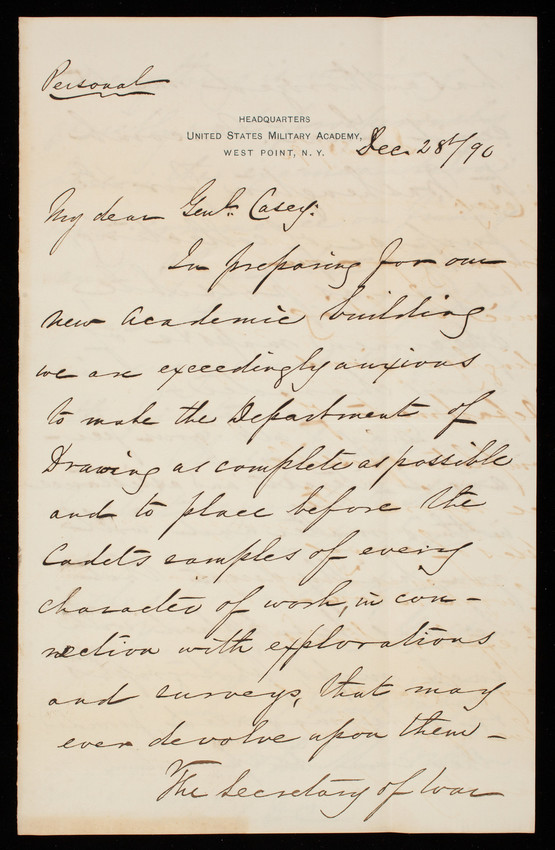 Personal
HEADQUARTERS
UNITED STATES MILITARY ACADEMY,
WEST POINT, N. Y.
Dec. 28th/90
My dear Genl. Casey:
In preparing for our
new academic building
we are exceedingly anxious
to make the Department of
Drawing as complete as possible
and to place before the
Cadets samples of every
character of work, in con-
nection with explorations
and surveys, that may
ever devolve upon them -
The Secretary of War